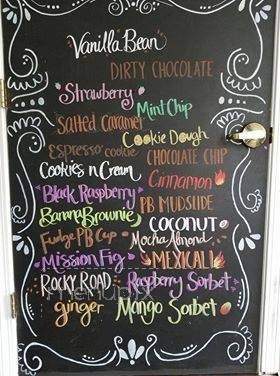 Vanilla Bean
DIRTY CHOCOLATE
Strawberry
Mint Chip
Salted Caramel
Cookie Dough
Espresso cookie
CHOCOLATE CHIP
Cookies n Cream
Cinnamon
Black Raspberry
PB MUDSLIDE
Banana Brownie
COCONUT
Fudge PB Cup
Mocha Almond
Mission Fig
MEXICALI
ROCKY ROAD
Raspberry Sorbet
ginger
Mango Sorbet
menupix